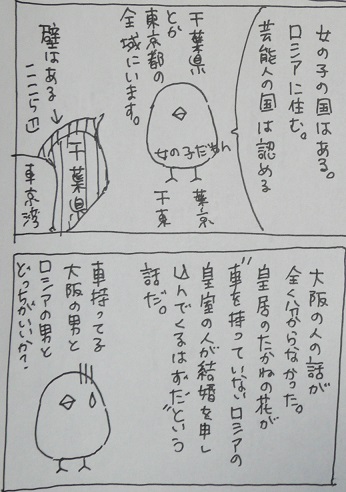 女の子の国はある。
ロシアに住む。
芸能人の国は認める
千葉県
とか
東京都の
全域にいます。
女の子だもん
葉京
千東
壁はある
ここら辺
千葉県
東京湾
大阪の人の話が
全く分からなかった。
皇居のたかねの花が
"車を持っていないロシアの
皇室の人が結婚を申し
込んでくるはずだ"という
話だ。
車持ってる
大阪の男と
ロシアの男と
どっちがいいか?